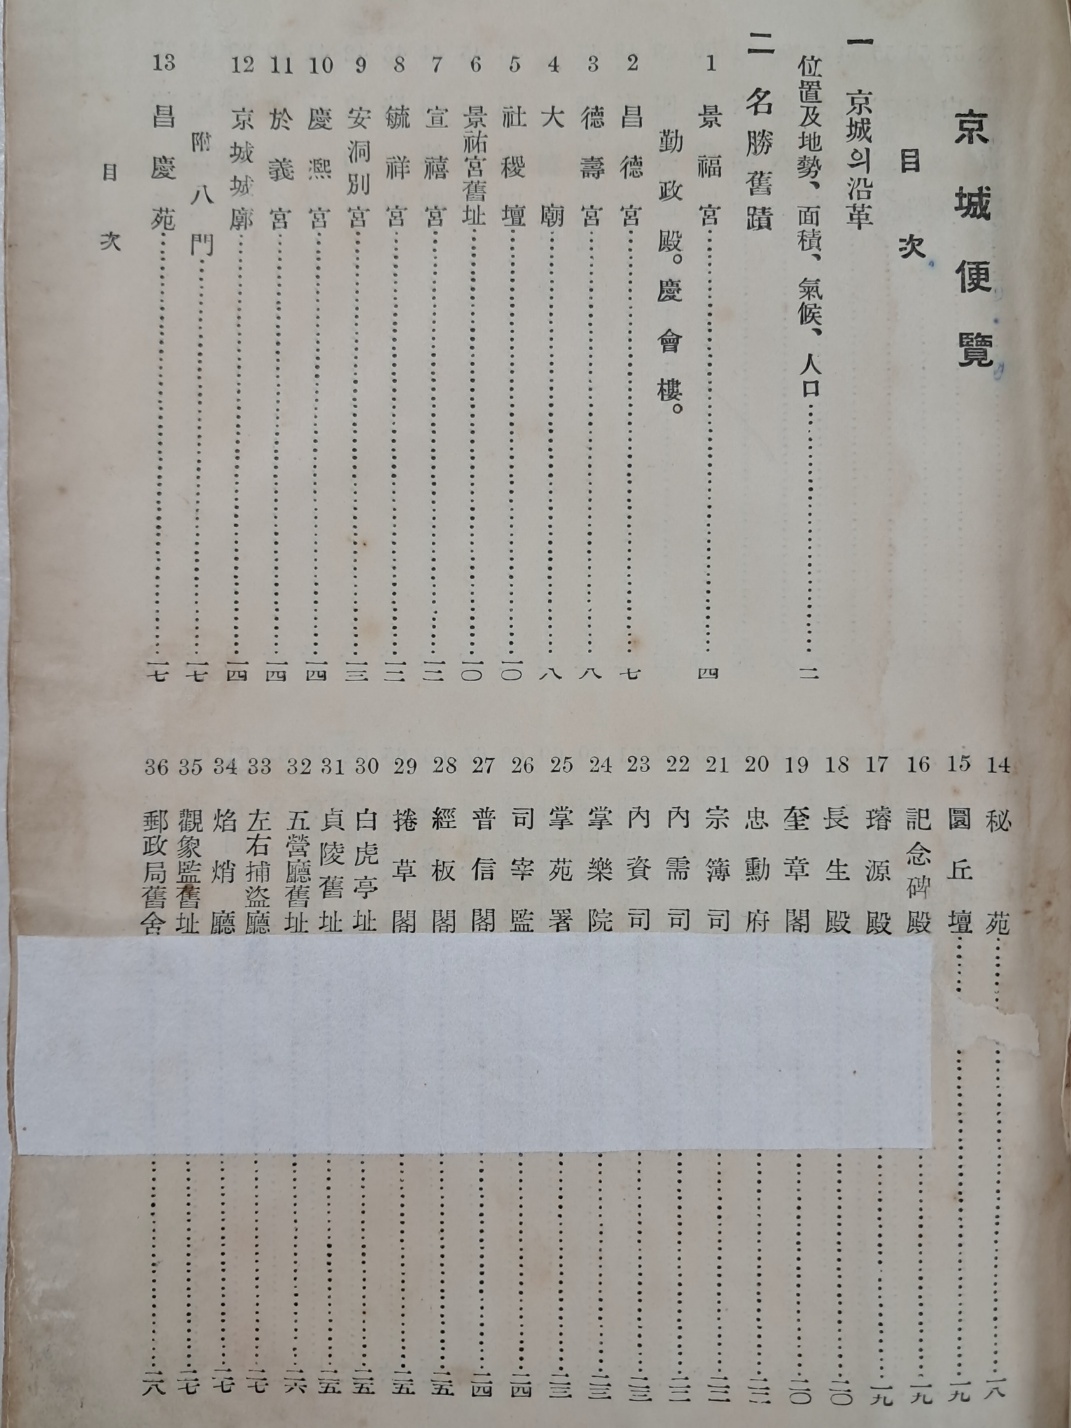 京城便覽
目次
一 京城의沿革
位置及地勢、面積、氣候、人口…………二
二 名勝舊蹟
1 景福宮…………四
勤政殿。慶會樓。
2 昌德宮…………七
3 德壽宮…………八
4 大廟…………八
5 社稷壇…………一〇
6 景祐宮舊址…………一〇
7 宣禧宮…………一二
8 毓祥宮…………一二
9 安洞別宮…………一三
10 慶凞宮…………一四
11 於義宮…………一四
12 京城城廓…………一四
附八門…………一七
13 昌慶苑…………一七
目次
14 秘苑…………一八
15 圜丘壇…………一九
16 記念碑殿…………一九
17 璿源殿…………一九
18 長生殿…………二〇
19 奎章閣…………二〇
20 忠勳府…………二二
21 宗簿司…………二二
22 內需司…………二二
23 內資司…………二三
24 掌樂院…………二三
25 掌苑署…………二三
26 司宰監…………二四
27 普信閣…………二四
28 經板閣…………二五
29 捲草閣…………二五
30 白虎亭址…………二五
31 貞陵舊址…………二五
32 五營廳舊址…………二六
33 左右捕盜廳…………二七
34 焰焇廳…………二七
35 觀象監舊址…………二七
36 郵政局舊舍…………二八